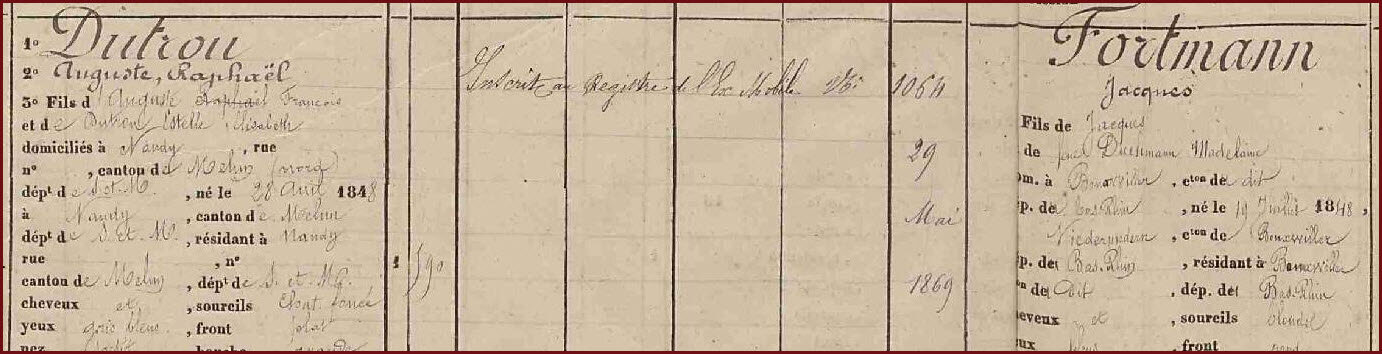 1º Dutrou
2º Auguste, Raphaël
3º Fils d'Auguste Raphaël François
et de Dutrou Estelle Elisabeth
domiciliés à Nandy, rue
nº , canton de Melun (nord)
dépt de S. et M. , né le 28 Avril 1848
à Nandy , canton de Melun
dépt de S. et M. , résidant à Nandy
rue , nº
canton de Melun , dépt de S. et M.
cheveux et , sourcils chat. foncé
yeux gris bleus , front
nez , bouche grande
1 590
Inscrit au Registre de l'Ex Mobile 1064
29
Mai
1869
Fortmann
Jacques
Fils de Jacques
de feue Madelaine
om. à Bouxwiller , cton de dit
p. de Bas-Rhin , né le 19 Juillet 1848,
Niedermodern , cton de Bouxwiller
ép. de Bas-Rhin , résidant à Bouxwiller
on de dit , dép. de Bas-Rhin
heveux et , sourcils blonds
ux bleus , front rond